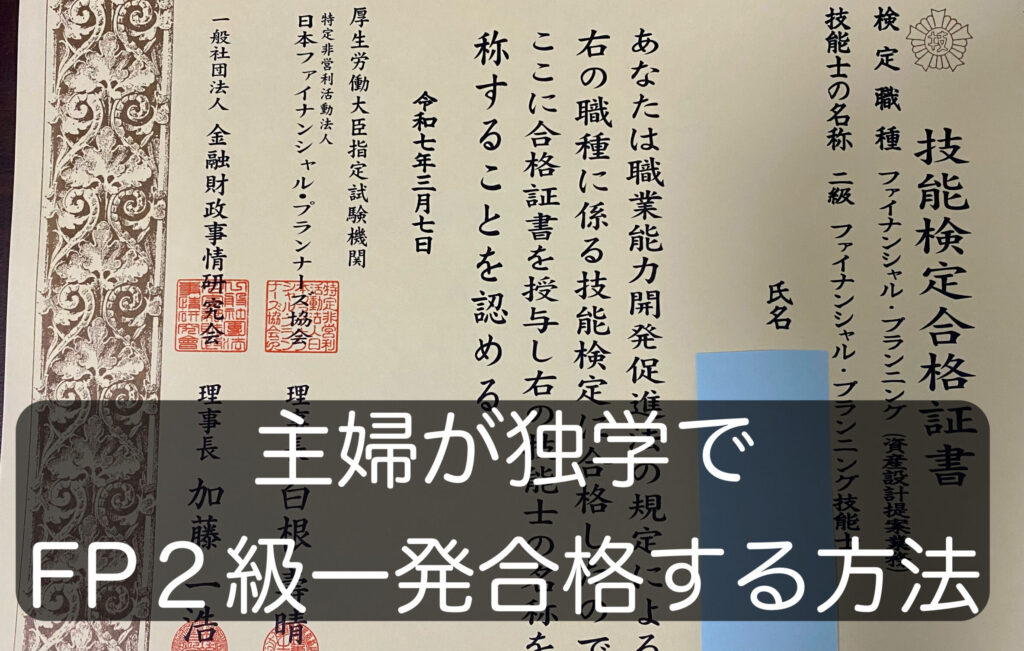 技能検定合格証書
検定職種 ファイナンシャル・プランニング(資産設計提案業務)
技能士の名称 二級 ファイナンシャル・プランニング技能士
氏名
あなたは職業能力開発促進法の規定による
右の職種に係る技能検定に合格したので
ここに合格証書を授与し右の技能士の名称を
称することを認める
令和七年三月七日
厚生労働大臣指定試験機関
特定非営利活動法人
日本ファイナンシャル・プランナーズ協会
理事長 白根 壽晴
一般社団法人 金融財政事情研究会
理事長 加藤 一浩
主婦が独学で
FP2級一発合格する方法